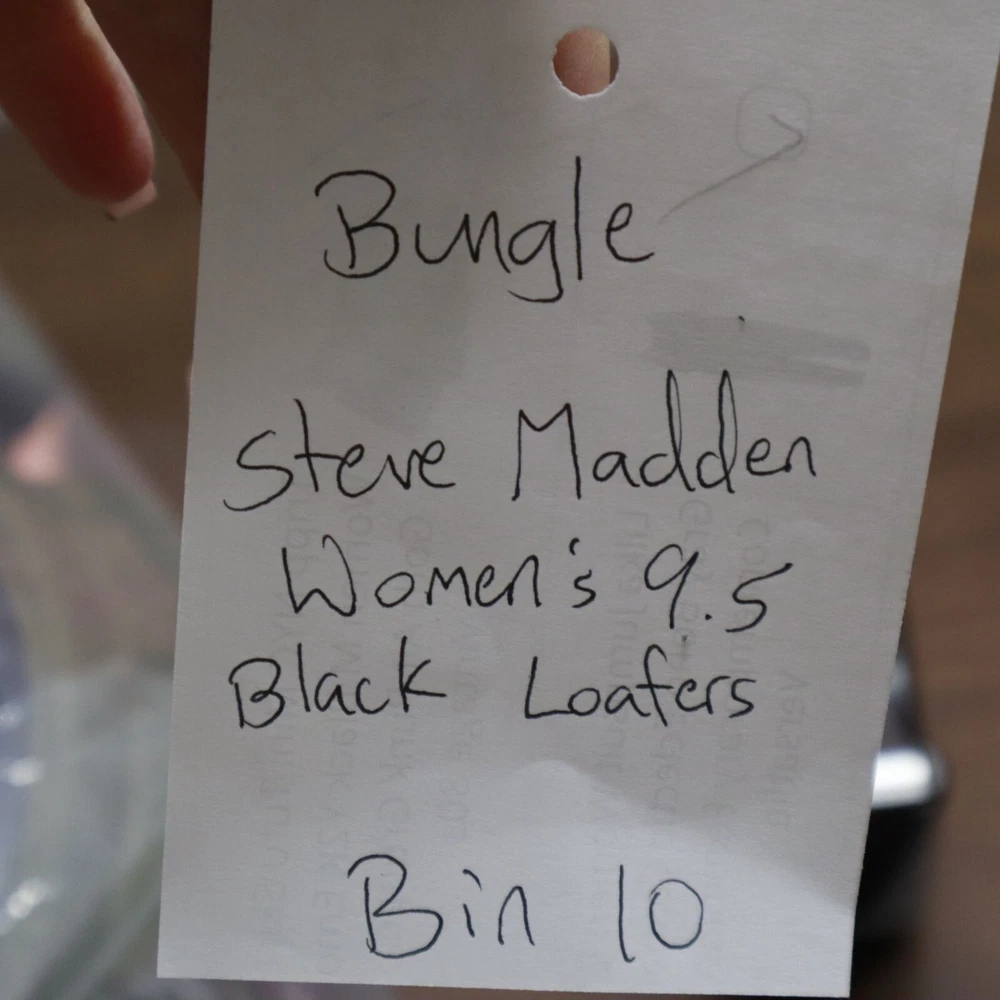 Bungle
Steve Madden
Women's 9.5
Black Loafers
Bin 10